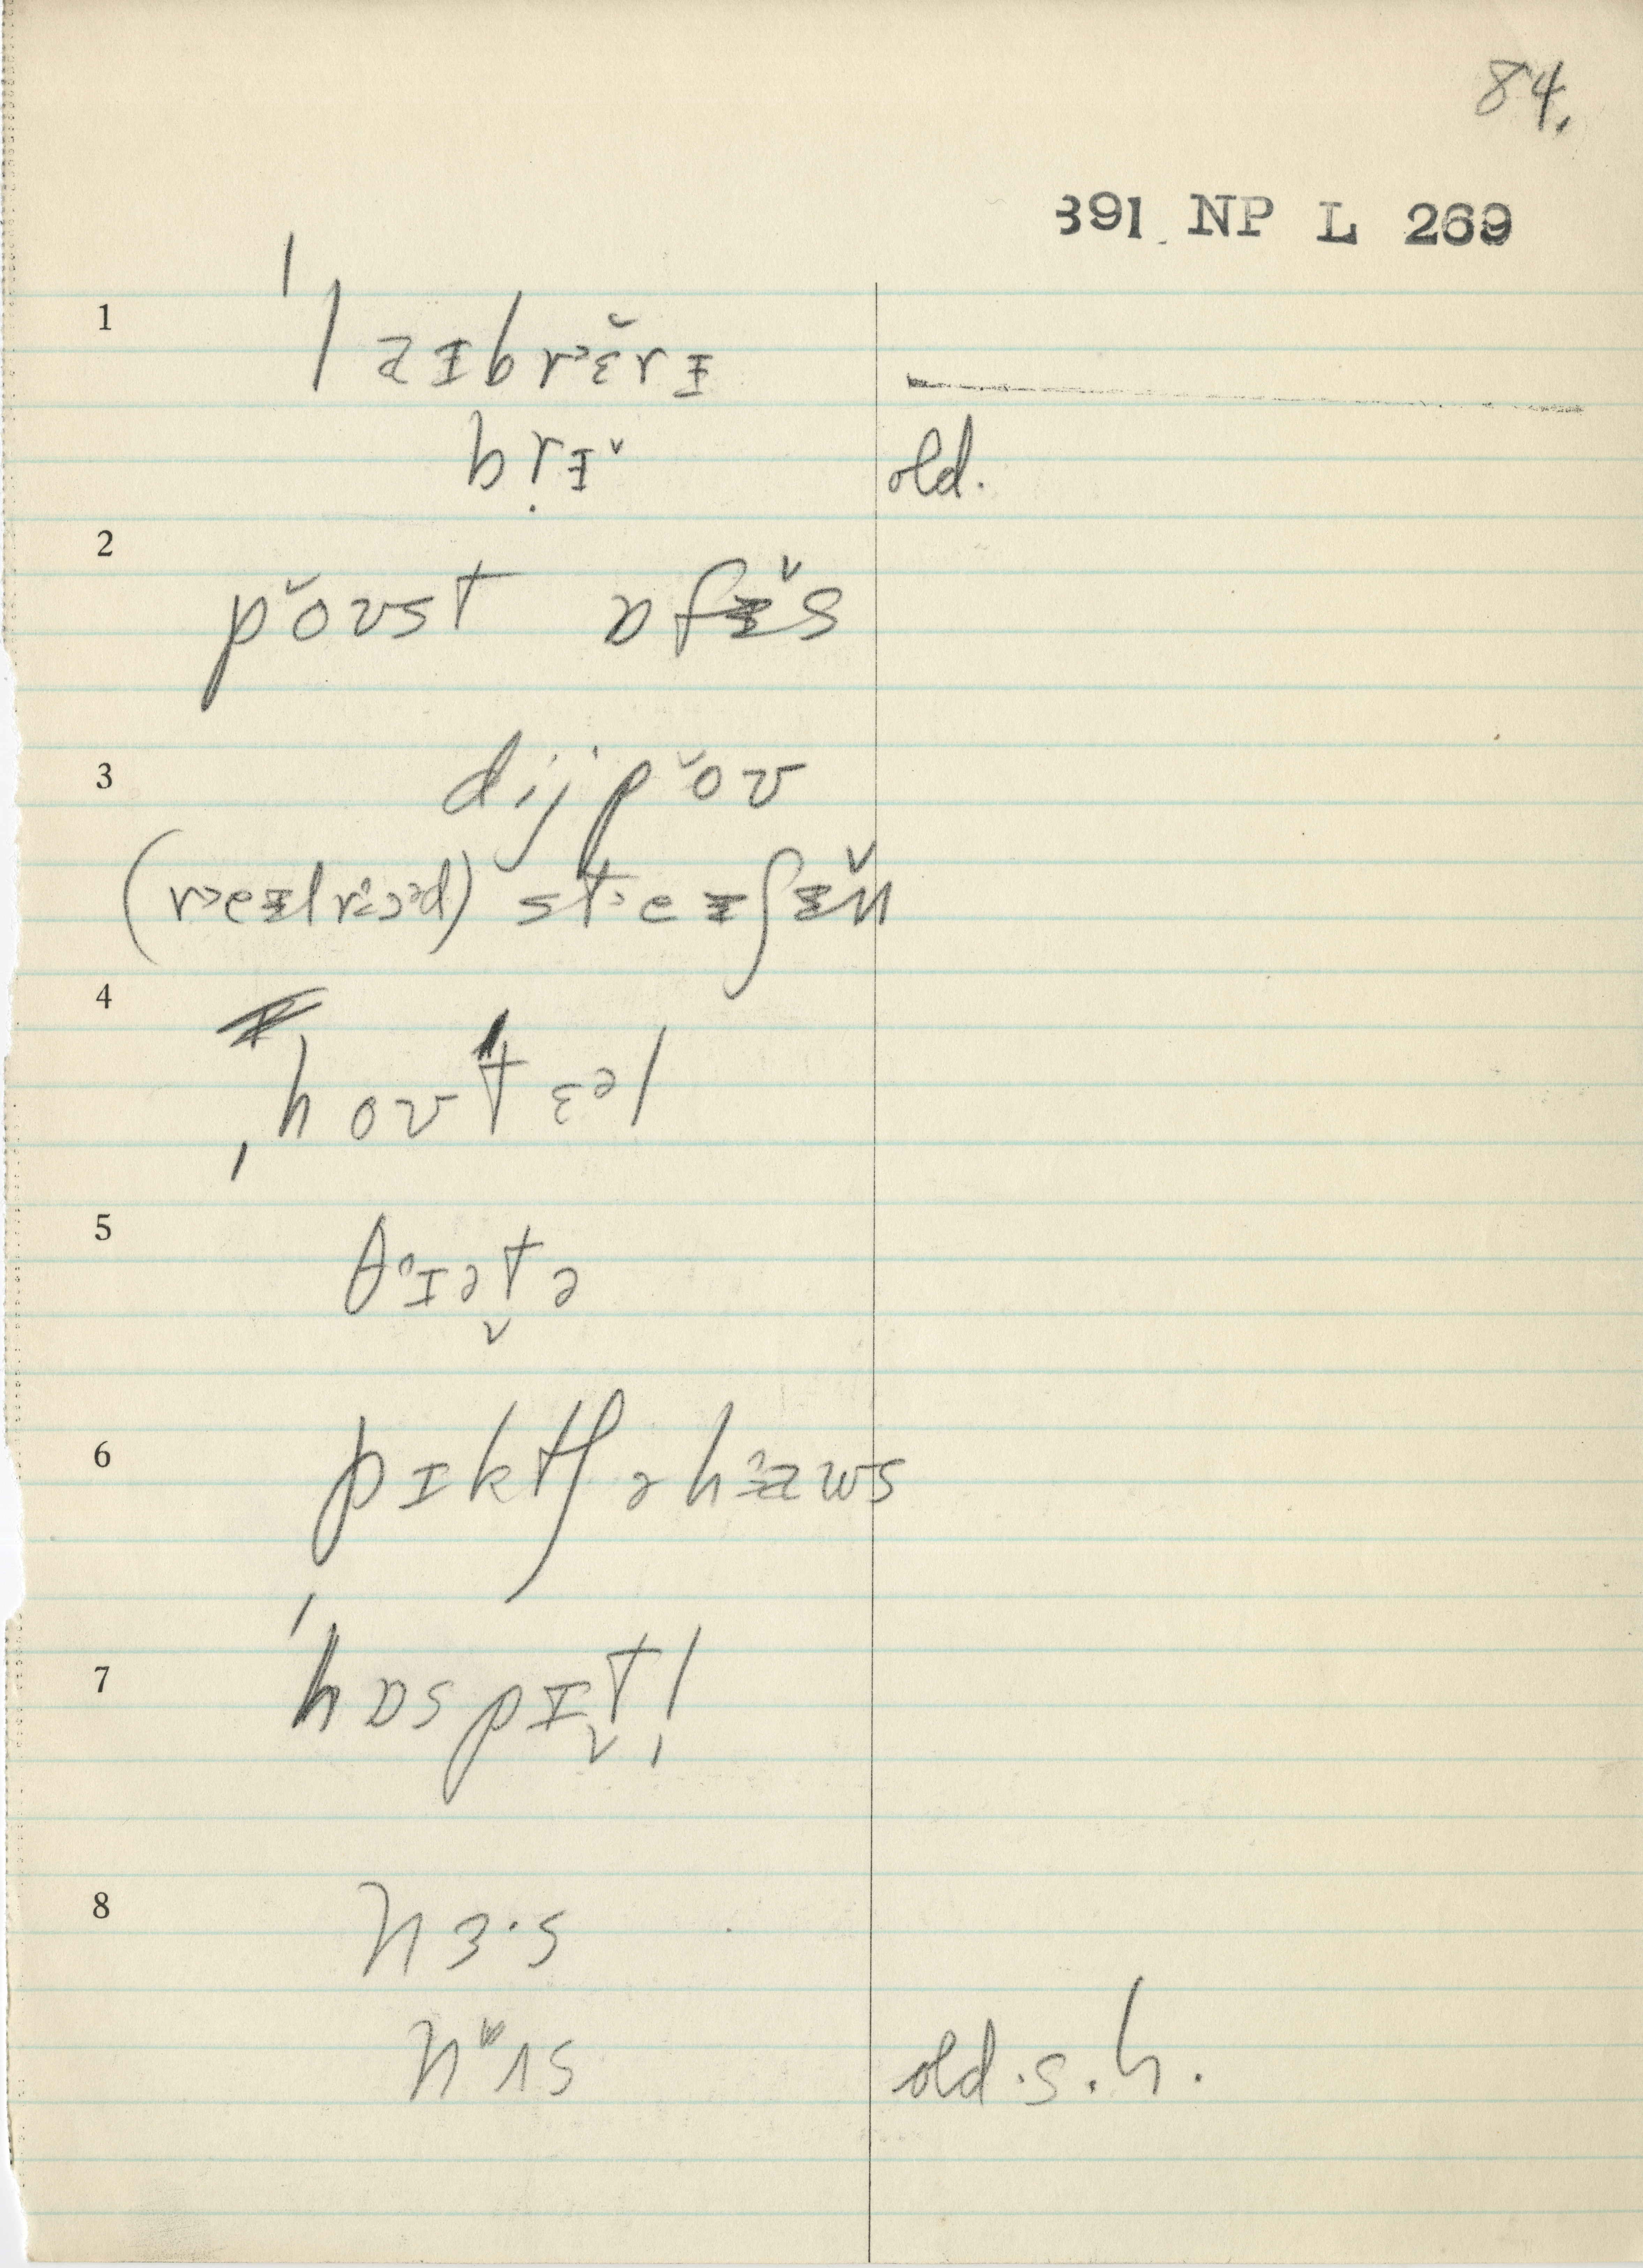 84.
391 NP L 269
1
ˈlaɪbrɛ̆rɪ
brɪ̆ old.
2
pˇoʊst ɒfɪ̆s
3
dijpˇoʊ
(reɪlroəd) steɪʃɪ̆n
4
ˌhoʊˈtɛəl
5
θɪət̬ə
6
pɪktʃəhaws
7
ˈhɒspɪt̬l̩
8
nɜ·s
nʌs old.s.h.